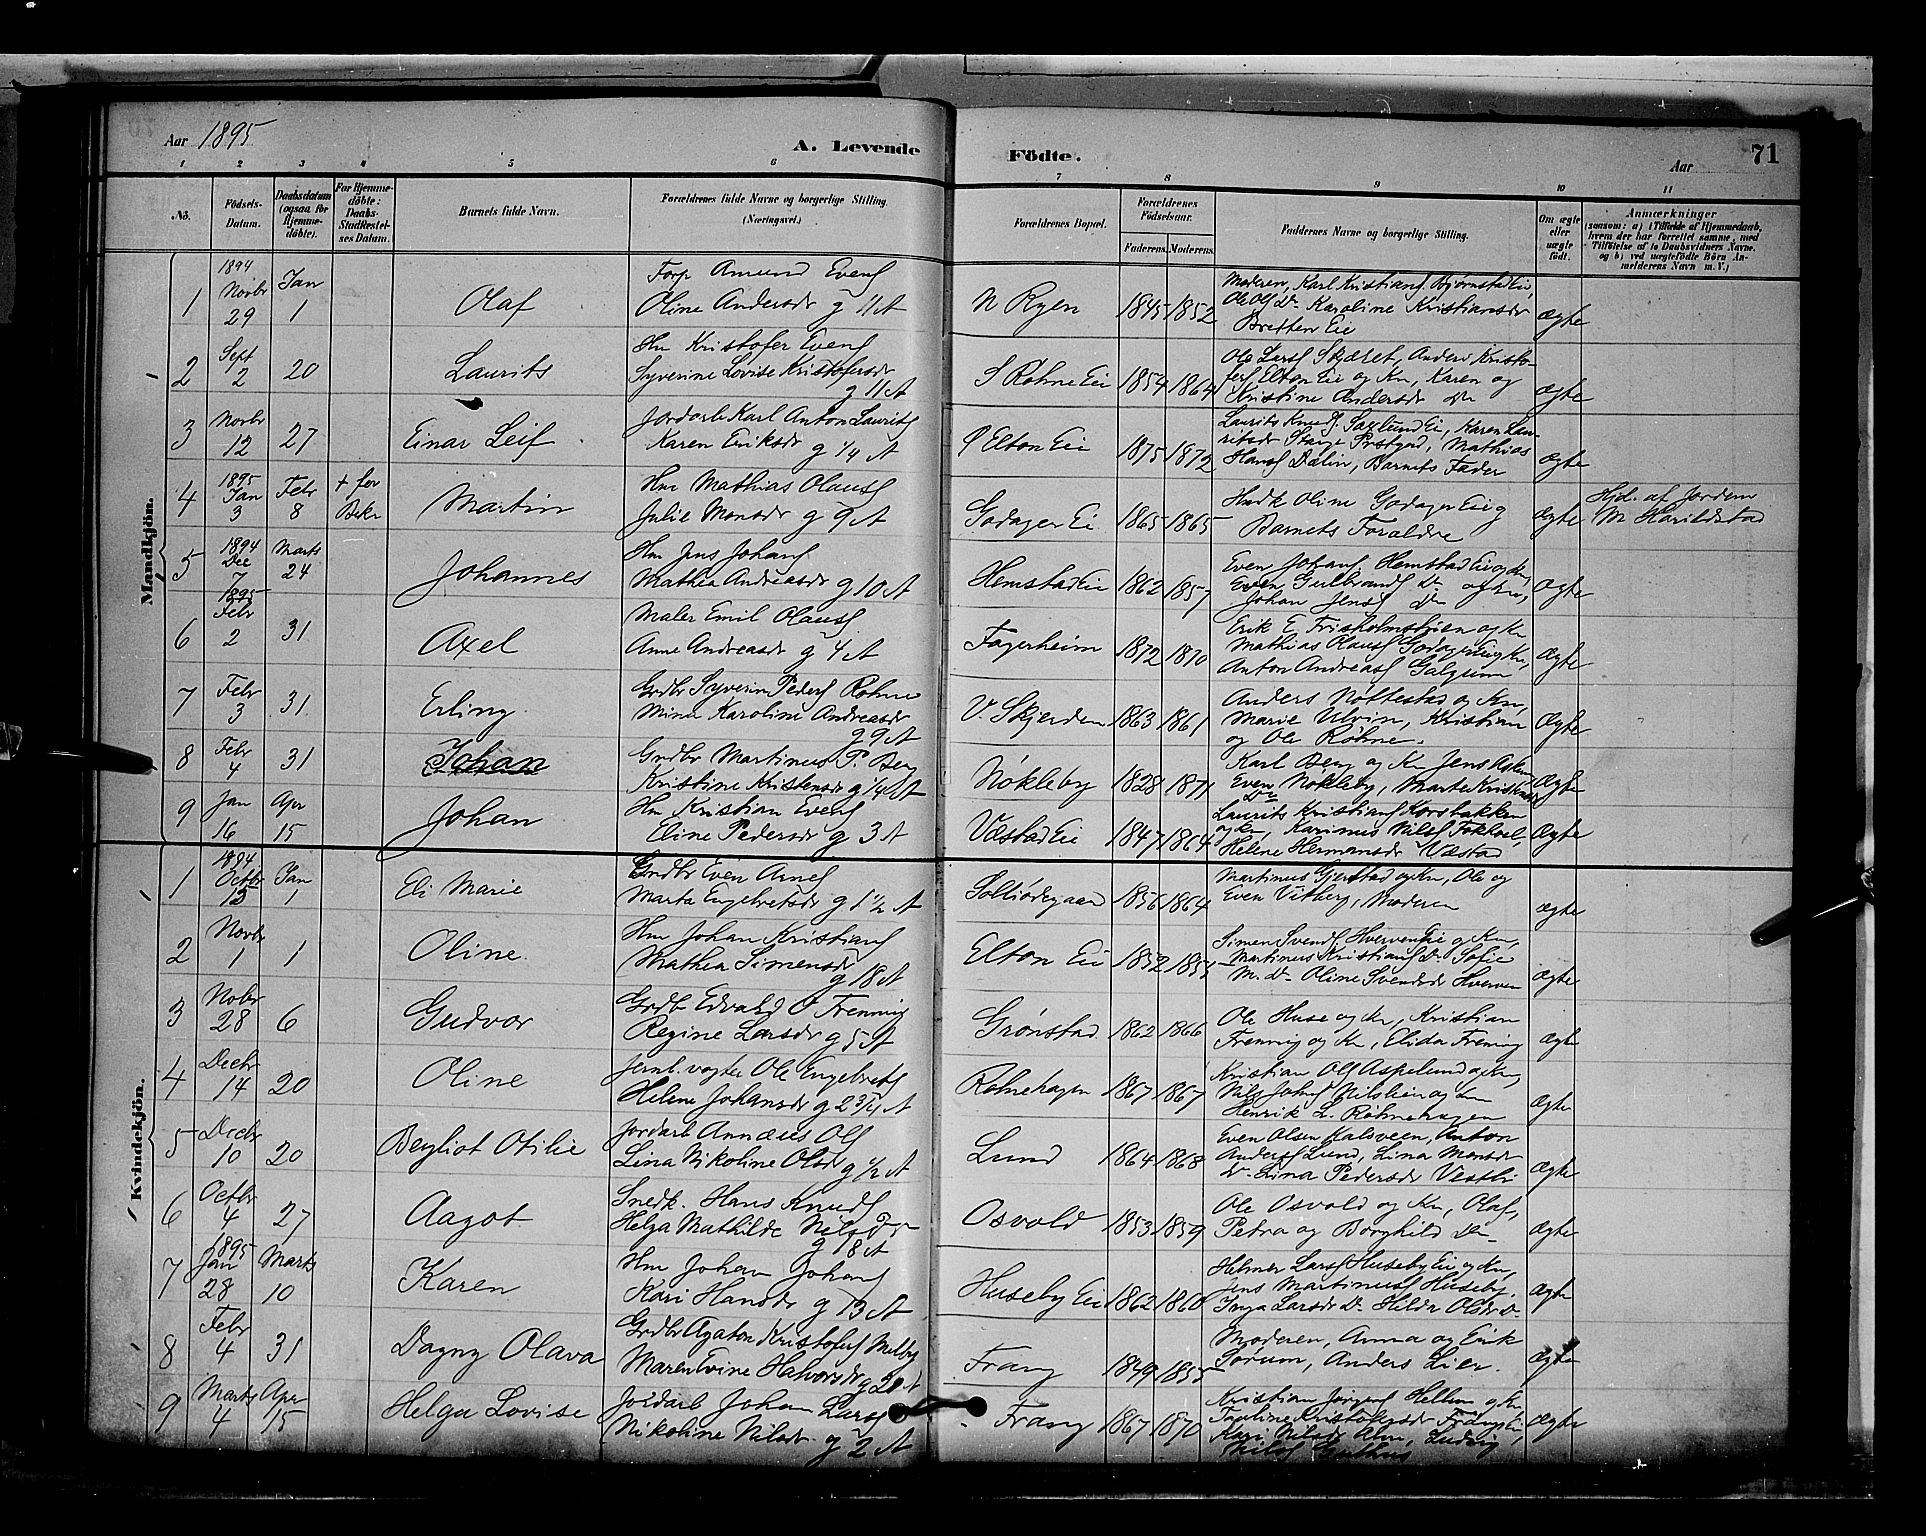 Aar 1895
A. Levende
Födte.
Aar
71
1 2 3 4 5 6 7 8 9 10 11
No.
Födsels-
Datum.
Daabsdatum
(ogsaa for
Hjemme-
döbte).
For Hjemme-
döbte:
Daabs-
Stadfæstel-
ses Datum.
Barnets fulde Navn.
Forældrenes fulde Navne og borgerlige Stilling.
(Næringsvei.)
Forældrenes Bopæl.
Forældrenes
Födselsaar.
Faderens. Moderens.
Faddernes Navne og borgerlige Stilling.
Om ægte
eller
uægte
födt.
Anmærkninger
(saasom: a) i Tilfælde af Hjemmedaab,
hvem der har forrettet samme, med
Tilföielse af to Daabsvidners Navne.
og b) ved uægtefödte Börn An-
melderens Navn m. V.)
Mandkjön.
1 1894 Novbr 29 Jan 1 Olaf
Forp Amund Evens
Oline Andersdr g 11 A
N Ryen 1845 1852
Moderen, Karl Kristians Bjørnstad Ei,
Ole Ols Do Karoline Kristiansdr
Bretten Eie
ægte
2 Sept 2 20 Laurits
Hm Kristofer Evens
Syverine Lovise Kristofersdr
g 11 A
S Røhne Ei 1854 1864
Ole Lars Skjæret, Anders Kristo-
fers Elton Eie og Kn, Karen og
Kristine Andersdr Do
ægte
3 Novbr 12 27 Einar Leif
Jordarb Karl Anton Laurits
Karen Eriksdr g 1/4 A
Ø Elton Eie 1875 1872
Laurits Knuds Saxlund Ei, Karen Lau-
ritsdr Stange Prstgrd, Mathias
Hans Dalin, Barnets Fader
ægte
4 1895 Jan 3 Febr 8 + før Bekr Martin
Hm Mathias Olaus
Julie Monsdr g 9 A
Godager Ei 1865 1865
Oline Godager Eie g
Barnets Forældre
ægte
Hjd. af Jordem
M Harildstad
5 1894 Dec 7 Marts 24 Johannes
Hm Jens Johans
Mathea Andreasdr g 10 A
Hemstad Ei 1862 1857
Even Johans Hemstad Ei og Kn,
Even Gulbrands Do og Kn,
Johan Jens Do
ægte
6 1895 Febr 2 31 Axel
Maler Emil Olaus
Anne Andreasdr g 4 A
Fagerheim 1872 1870
Erik E. Frisholmstuen og Kn
Mathias Olaus Godager Ei og Kn,
Anton Andreas Galgum
ægte
7 Febr 3 31 Erling
Grdbr Syverin Peders Rohne
Mina Karoline Andreasdr
g 9 A
V. Skjerden 1863 1861
Anders Nøttestad og Kn,
Marie Ulvin, Kristian
og Ole Røhne.
ægte
8 Febr 4 31 Johan
Grdbr Martinus P. Berg
Kristine Kristensdr g 1/4 A
Nøkleby 1828 1871
Karl Berg og Kn Jens
Even Nøkleby, Marte Kristensdr
Do
ægte
9 Jan 16 Apr 15 Johan
Hm Kristian Evens
Eline Pedersdr g 3 A
Væstad Ei 1847 1864
Laurits Kristians Korsbakken
og Kn, Karinus Nils Fokhol,
Helene Hermansdr Væstad
ægte
Kvindekjön.
1 1894 Octbr 13 Jan 1 Eli Marie
Grdbr Even Arnes
Marta Engebretsdr g 1 1/2 A
1856 1864
Martinus Gjerstad og Kn, Ole og
Even Vitberg, Moderen
ægte
2 Novbr 1 1 Oline
Hm Johan Kristians
Mathea Simensdr
g 18 A
Elton Ei 1852 1855
Simen Svends Hverven Eie og Kn,
Martinus Kristians Do Sofie
M. Do Oline Svendsdr Hverven
ægte
3 Nobr 28 6 Gudvor
Grdb Edvald O Frenning
Regine Larsdr g 5 A
Grønstad 1862 1866
Ole Huse og Kn, Kristian
Frenning og Kn, Elida Frening
ægte
4 Decbr 14 20 Oline
Jernb. vogter Ole Engebrets
Helene Johansdr g 2 3/4 A
Rohnehagen 1867 1867
Kristian Ols Aspelund og Kn,
Nils Johns Nilslien og Kn
Henrik L. Røhnehagen
ægte
5 Decbr 10 20 Bergliot Otilie
Jordarb Annæus Ols
Lina Nikoline Olsdr g 1/2 A
Lund 1864 1868
Even Olsen Kalsveen, Anton
Anders Lund, Lina Monsdr
Do Lina Pedersdr Vestli
ægte
6 Octbr 4 27 Aagot
Snedk. Hans Knuds
Helga Mathilde Nilsdr
g 18 A
Osvold 1853 1859
Ole Osvold og Kn, Olaf,
Petra og Borghild Do
ægte
7 1895 Jan 28 Marts 10 Karen
Hm Johan Johans
Kari Hansdr g 13 A
Huseby Ei 1862 1860
Helmer Lars Huseby Ei og Kn,
Jens Martinus Huseby,
Inga Larsdr Do Hilda Olsdr Do
ægte
8 Febr 4 31 Dagny Olava
Grdbr Agaton Kristofers Melby
Maren Evine Halvorsdr g 20 A
Frang 1849 1855
Moderen, Anna og Erik
Sørum, Anders Lier.
ægte
9 Marts 4 Apr 15 Helga Lovise
Jordarb Johan Lars
Nikoline Nilsdr g 2 A
Frang 1867 1870
Kristian Jørgens Hellum og Kn
Pauline Kristofersdr Frang Ei,
Kari Nilsdr Alm, Ludvig
Nils
ægte